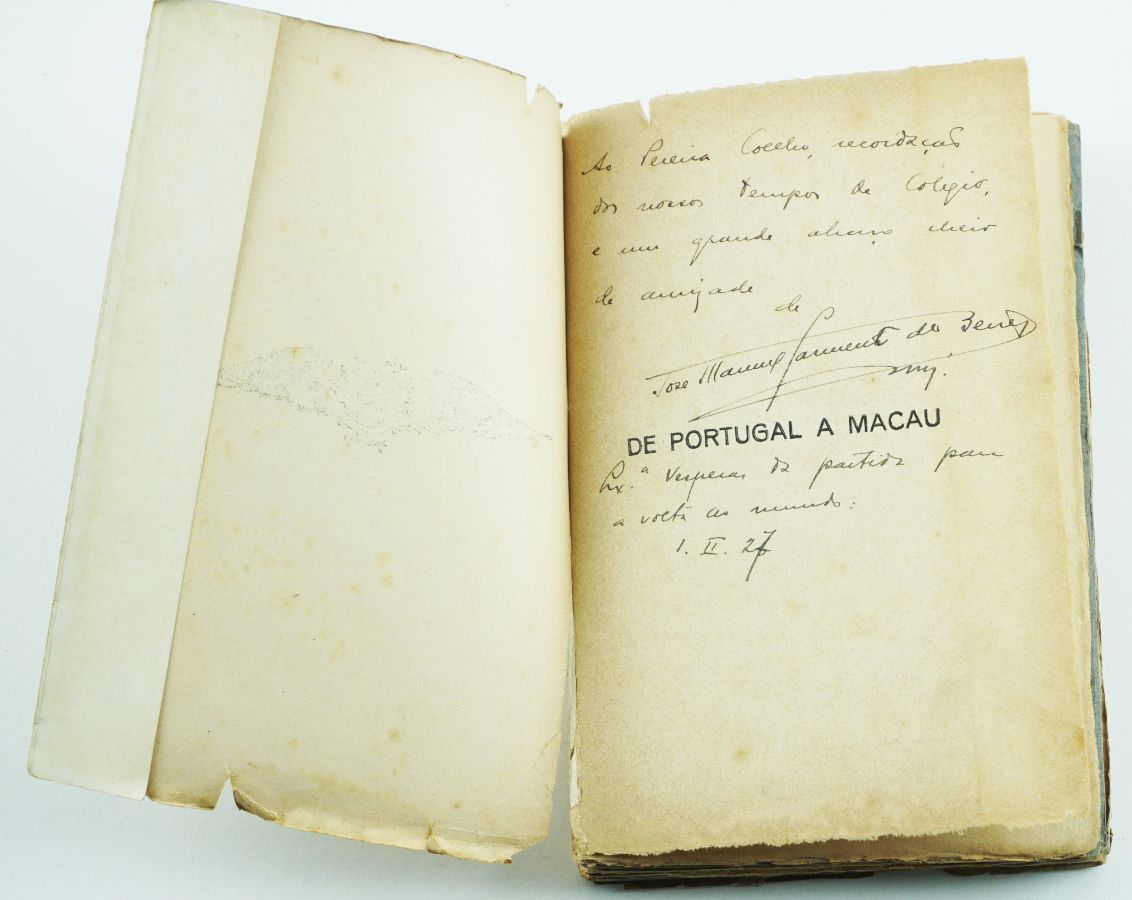 Ao Pereira Coelho, recordação
dos nossos tempos de Colégio,
e um grande abraço cheio
de amizade
de
José Manuel Sarmento de Beires
DE PORTUGAL A MACAU
Lx.ª Vesperas da partida para
a volta ao mundo:
1. II. 27